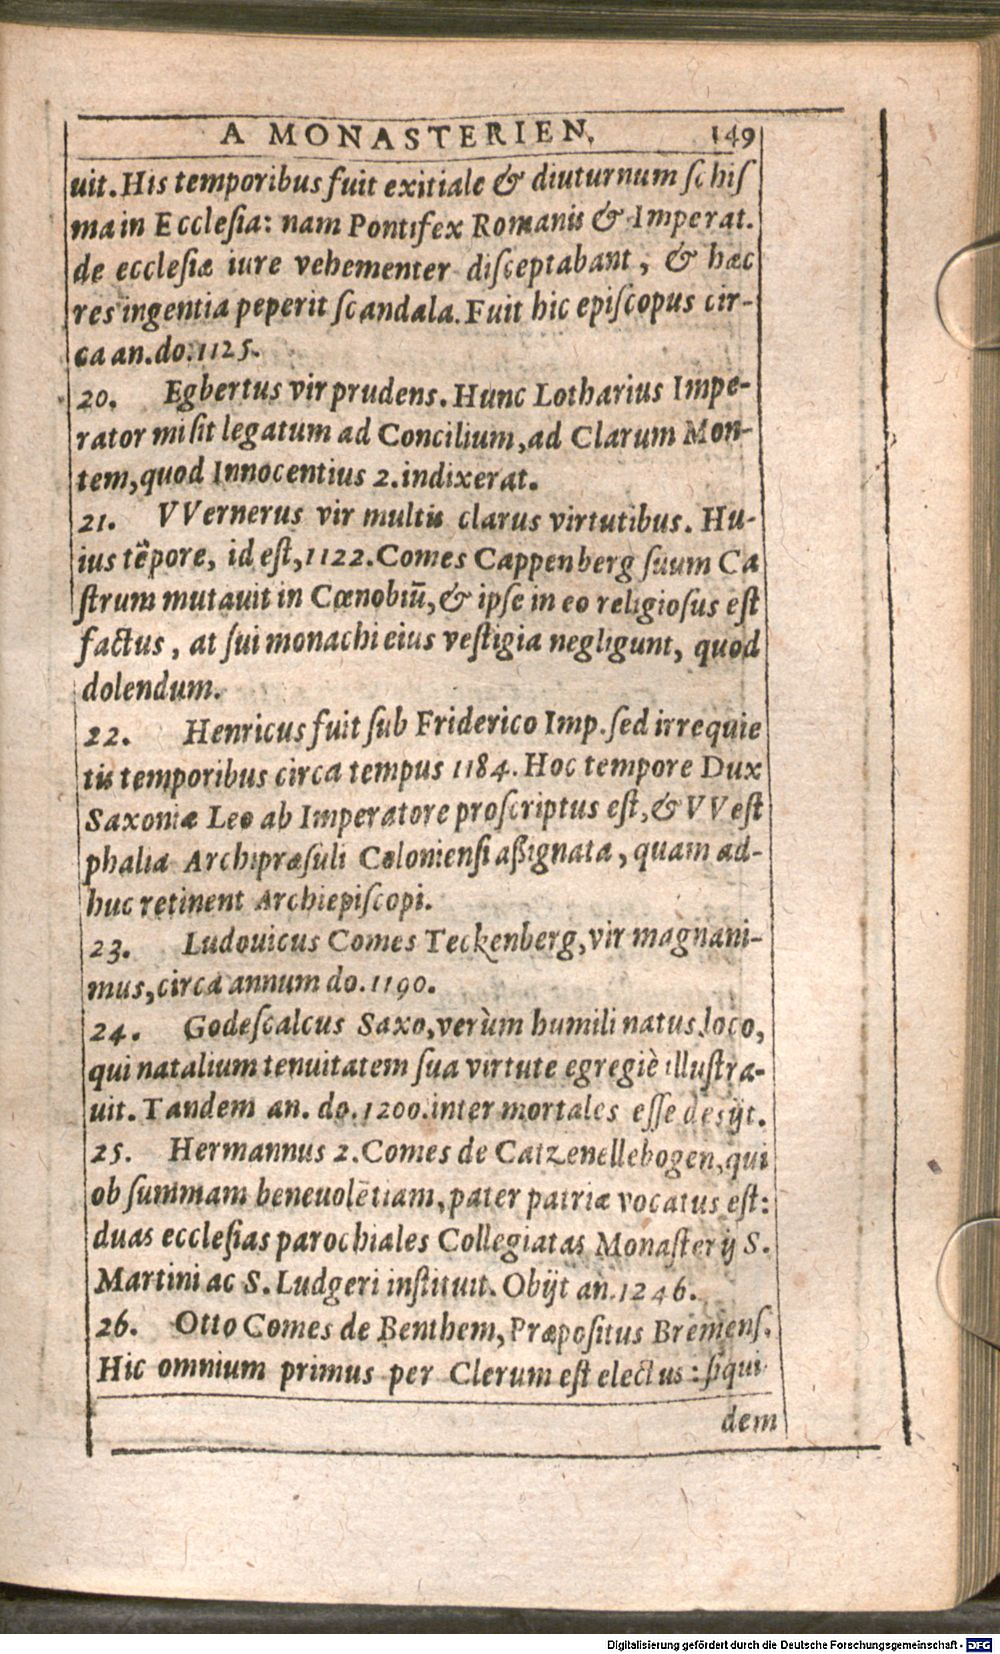 A MONASTERIEN. 149
uit. His temporibus fuit exitiale & diuturnum ſchiſ
ma in Eccleſia: nam Pontifex Romanus & Imperat.
de eccleſiæ iure vehementer diſceptabant, & hæc
res ingentia peperit ſcandala. Fuit hic epiſcopus cir-
ca an. do. 1125.
20. Egbertus vir prudens. Hunc Lotharius Impe-
rator miſit legatum ad Concilium, ad Clarum Mon-
tem, quod Innocentius 2. indixerat.
21. VVernerus vir multis clarus virtutibus. Hu-
ius tēpore, id eſt, 1122. Comes Cappenberg ſuum Ca
ſtrum mutauit in Cœnobiū, & ipſe in eo religioſus eſt
factus, at ſui monachi eius veſtigia negligunt, quod
dolendum.
22. Henricus fuit ſub Friderico Imp. ſed irrequie
tis temporibus circa tempus 1184. Hoc tempore Dux
Saxoniæ Leo ab Imperatore proſcriptus eſt, & VVeſt
phalia Archipræſuli Colonienſi aßignata, quam ad-
huc retinent Archiepiſcopi.
23. Ludouicus Comes Teckenberg, vir magnani-
mus, circa annum do. 1190.
24. Godeſcalcus Saxo, verùm humili natus loco,
qui natalium tenuitatem ſua virtute egregiè illuſtra-
uit. Tandem an. do. 1200. inter mortales eſſe desijt.
25. Hermannus 2. Comes de Catzenellebogen, qui
ob ſummam beneuolētiam, pater patriæ vocatus eſt:
duas eccleſias parochiales Collegiatas Monaſterij S.
Martini ac S. Ludgeri inſtituit. Obijt an. 1246.
26. Otto Comes de Benthem, Præpoſitus Bremenſ.
Hic omnium primus per Clerum eſt electus: ſiqui
dem
Digitalisierung gefördert durch die Deutsche Forschungsgemeinschaft - DFG